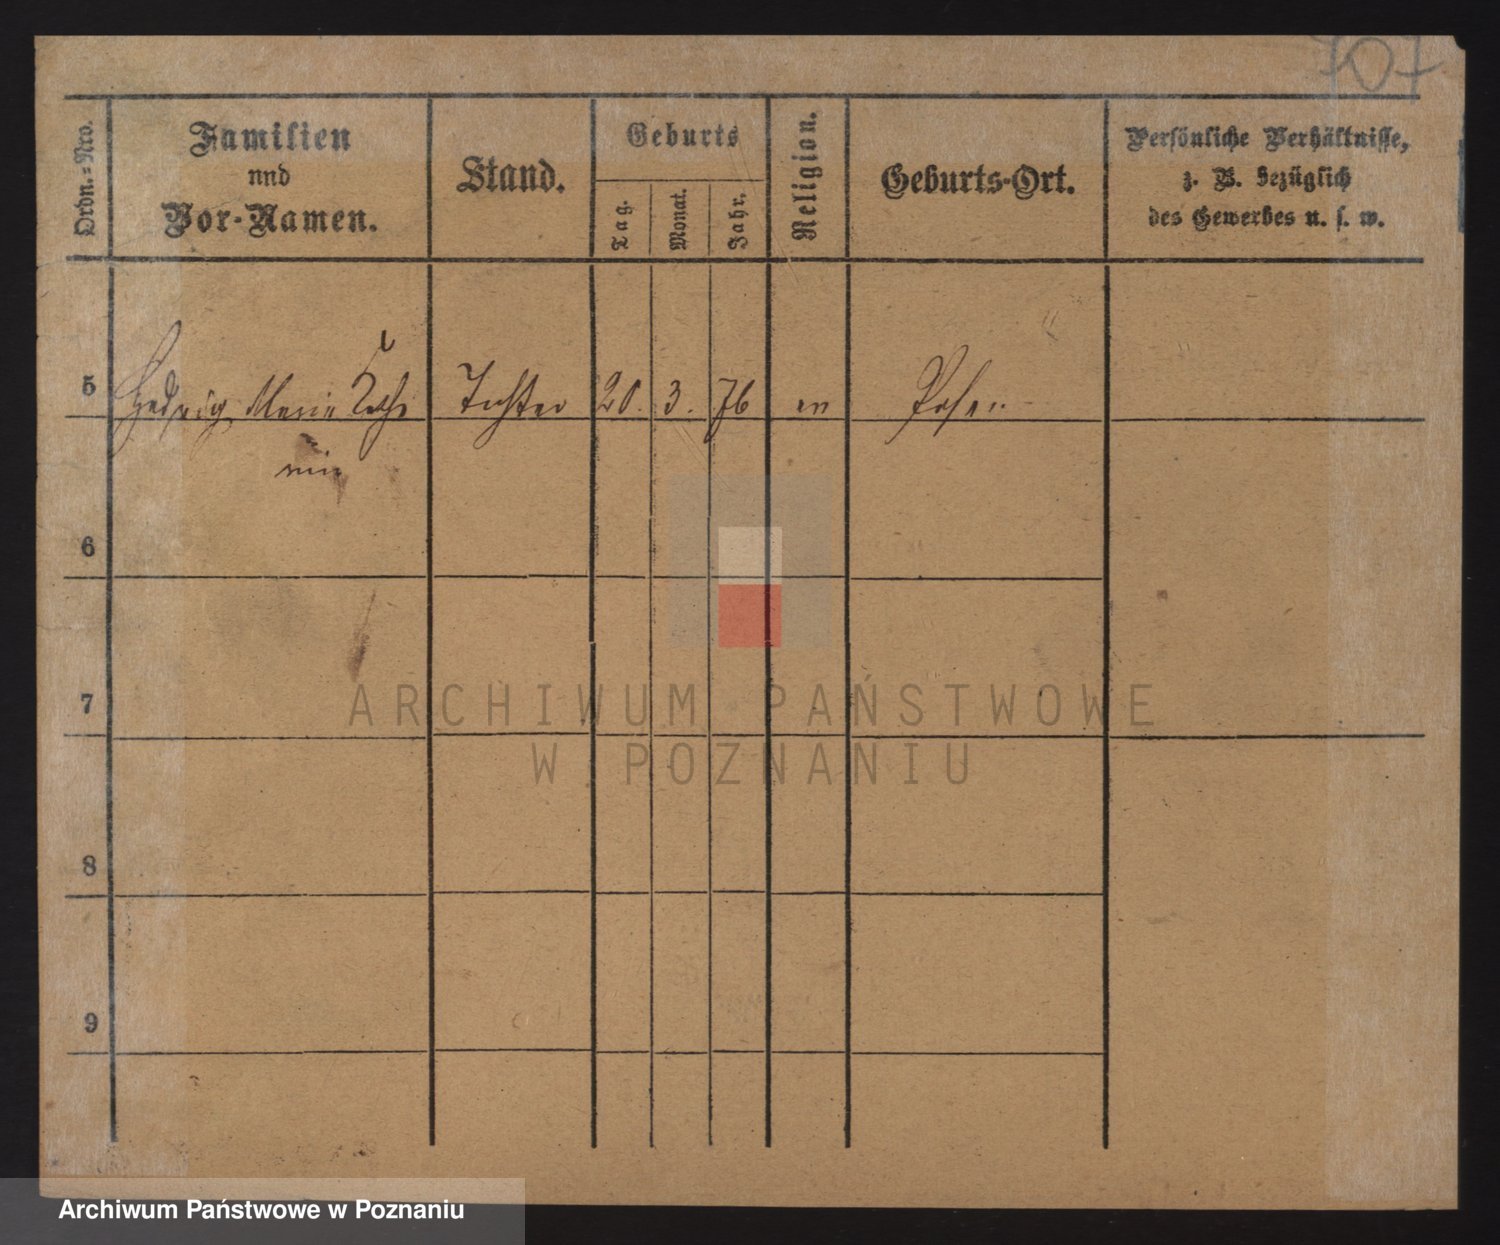 707
Ordn.-Nro.
Familien
und
Vor-Namen.
Stand.
Geburts
Tag.
Monat.
Jahr.
Religion.
Geburts-Ort.
Persönliche Verhältnisse,
z. B. bezüglich
des Gewerbes u. s. w.
5 Hedwig Marie Kathe Tochter 20. 3. 76 ev Posen
rine
6
7
8
9
ARCHIWUM PAŃSTWOWE
W POZNANIU
Archiwum Państwowe w Poznaniu